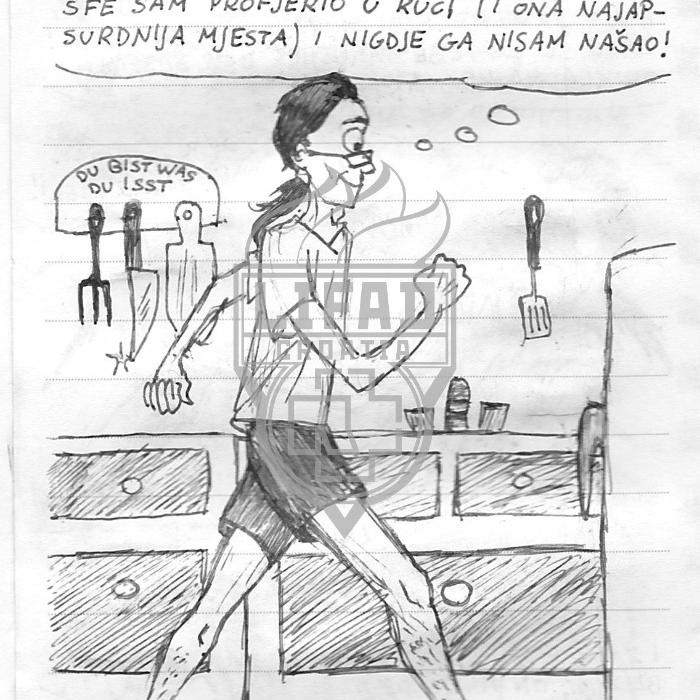 SFE SAM PROFJERIO U RUCI (I ONA NAJAP-
SURDNIJA MJESTA) I NIGDJE GA NISAM NAŠAO!
DU BIST WAS
DU ISST
LIFAT
CROATIA